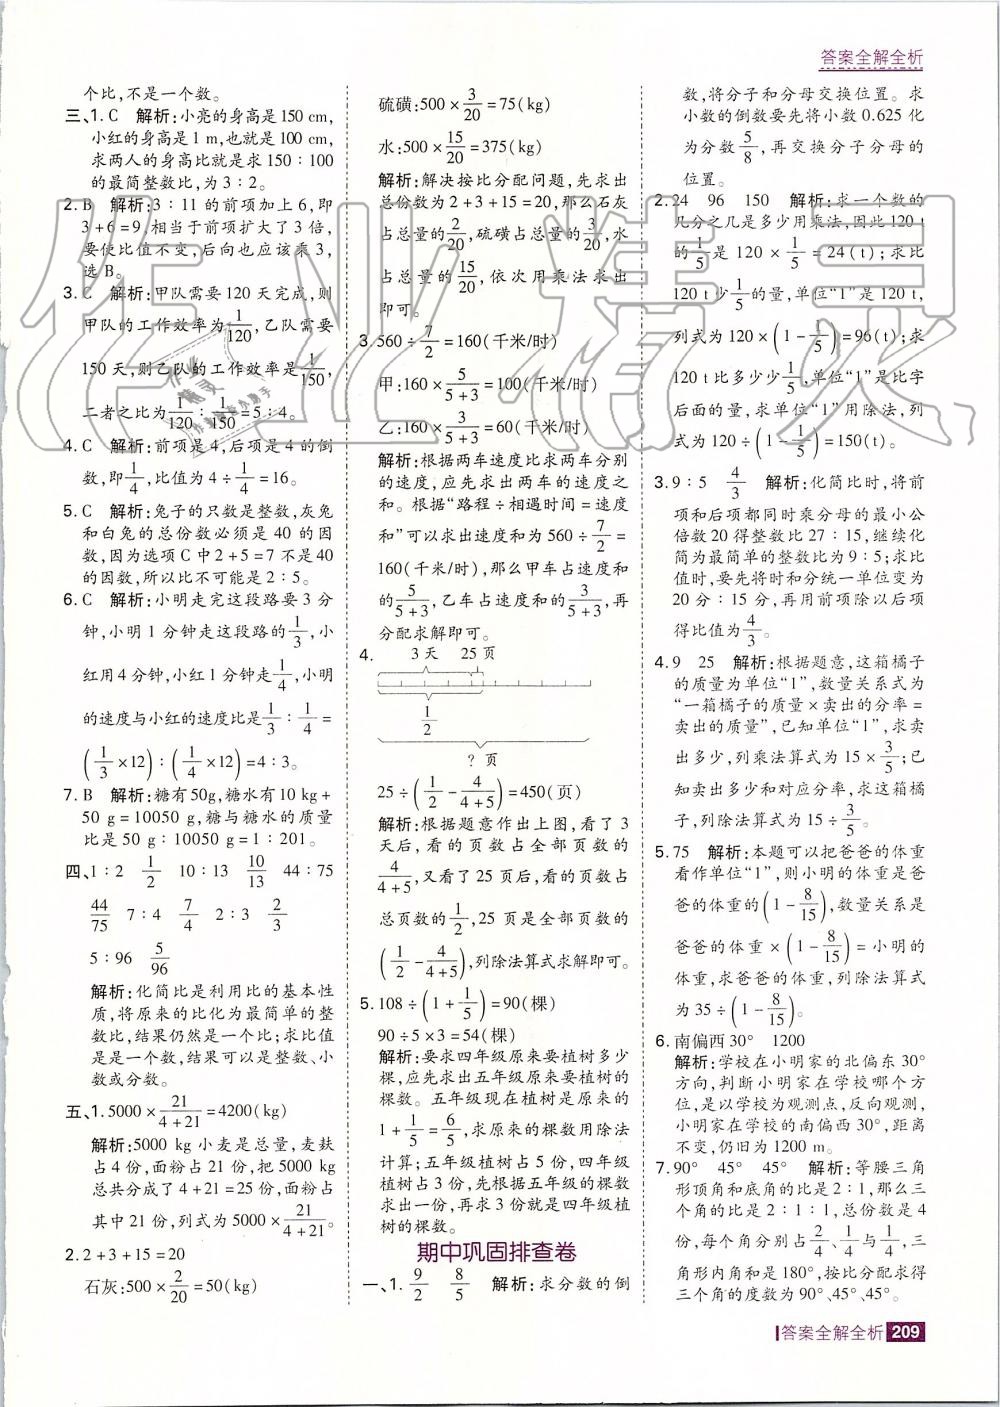 答案全解全析
个比,不是一个数。
三、1.C 解析:小亮的身高是150 cm,
小红的身高是1 m,也就是100 cm,
求两人的身高比就是求150∶100
的最简整数比,为3∶2。
2.B 解析:3∶11的前项加上6,即
3+6=9,相当于前项扩大了3倍,
要使比值不变,后向也应该乘3,
选B。
3.C 解析:甲队需要120天完成,则
甲队的工作效率为1/120,乙队需要
150天,则乙队的工作效率是1/150,
二者之比为1/120∶1/150=5∶4。
4.C 解析:前项是4,后项是4的倒
数,即1/4,比值为4÷1/4=16。
5.C 解析:兔子的只数是整数,灰兔
和白兔的总份数必须是40的因
数,因为选项C中2+5=7不是40
的因数,所以比不可能是2∶5。
6.C 解析:小明走完这段路要3分
钟,小明1分钟走这段路的1/3,小
红用4分钟,小红1分钟走1/4,小明
的速度与小红的速度比是1/3∶1/4=
(1/3×12)∶(1/4×12)=4∶3。
7.B 解析:糖有50g,糖水有10 kg+
50 g=10050 g,糖与糖水的质量
比是50 g∶10050 g=1∶201。
四、1∶2 1/2 10∶13 10/13 44∶75
44/75 7∶4 7/4 2∶3 2/3
5∶96 5/96
解析:化简比是利用比的基本性
质,将原来的比化为最简单的整
数比,结果仍然是一个比;求比值
是是一个数,结果可以是整数、小
数或分数。
五、1.5000×21/(4+21)=4200(kg)
解析:5000 kg小麦是总量,麦麸
占4份,面粉占21份,把5000 kg
总共分成了4+21=25份,面粉占
其中21份,列式为5000×21/(4+21)。
2.2+3+15=20
石灰:500×2/20=50(kg)
硫磺:500×3/20=75(kg)
水:500×15/20=375(kg)
解析:解决按比分配问题,先求出
总份数为2+3+15=20,那么石灰
占总量的2/20,硫磺占总量的3/20,水
占总量的15/20,依次用乘法求出
即可。
3.560÷7/2=160(千米/时)
甲:160×5/(5+3)=100(千米/时)
乙:160×3/(5+3)=60(千米/时)
解析:根据两车速度比求两车分别
的速度,应先求出两车的速度之
和。根据“路程÷相遇时间=速度
和”可以求出速度和为560÷7/2=
160(千米/时),那么甲车占速度和
的5/(5+3),乙车占速度和的3/(5+3),再
分配求解即可。
4. 3天 25页
1/2
?页
25÷(1/2-4/(4+5))=450(页)
解析:根据题意作出上图,看了3
天后,看的页数占全部页数的
4/(4+5),又看了25页后,看的页数占
总页数的1/2,25页是全部页数的
(1/2-4/(4+5)),列除法算式求解即可。
5.108÷(1+1/5)=90(棵)
90÷5×3=54(棵)
解析:要求四年级原来要植树多少
棵,应先求出五年级原来要植树的
棵数。五年级现在植树是原来的
1+1/5=6/5,求原来的棵数用除法
计算;五年级植树占5份,四年级植
树占3份,先根据五年级的棵数求
出一份,再求3份就是四年级植
树的棵数。
期中巩固排查卷
一、1.9/2 8/5 解析:求分数的倒
数,将分子和分母交换位置。求
小数的倒数要先将小数0.625化
为分数5/8,再交换分子分母的
位置。
2.24 96 150 解析:求一个数的
几分之几是多少用乘法,因此120 t
的1/5是120×1/5=24(t);求比
120 t少1/5的量,单位“1”是120 t,
列式为120×(1-1/5)=96(t);求
120 t比多少少1/5,单位“1”是比字
后面的量,求单位“1”用除法,列
式为120÷(1-1/5)=150(t)。
3.9∶5 4/3 解析:化简比时,将前
项和后项都同时乘分母的最小公
倍数20得整数比27∶15,继续化
简为最简单的整数比为9∶5;求比
值时,要先将时和分统一单位变为
20分∶15分,再用前项除以后项
得比值为4/3。
4.9 25 解析:根据题意,这箱橘子
的质量为单位“1”,数量关系式为
“一箱橘子的质量×卖出的分率=
卖出的质量”,已知单位“1”,求卖
出多少,列乘法算式为15×3/5;已
知卖出多少和对应分率,求这箱橘
子,列除法算式为15÷3/5。
5.75 解析:本题可以把爸爸的体重
看作单位“1”,则小明的体重是爸
爸的体重的(1-8/15),数量关系是
爸爸的体重×(1-8/15)=小明的
体重,求爸爸的体重,列除法算式
为35÷(1-8/15)。
6.南偏西30° 1200
解析:学校在小明家的北偏东30°
方向,判断小明家在学校哪个方
向,是以学校为观测点,反向观测,
小明家在学校的南偏西30°,距离
不变,仍旧为1200 m。
7.90° 45° 45° 解析:等腰三角
形顶角和底角的比是2∶1,那么三
个角的度数比为2∶1∶1,总份数是4
份,每个角分别占2/4、1/4与1/4,三
角形内角和是180°,按比分配求得
三个角的度数为90°、45°、45°。
答案全解全析 209
作业精灵